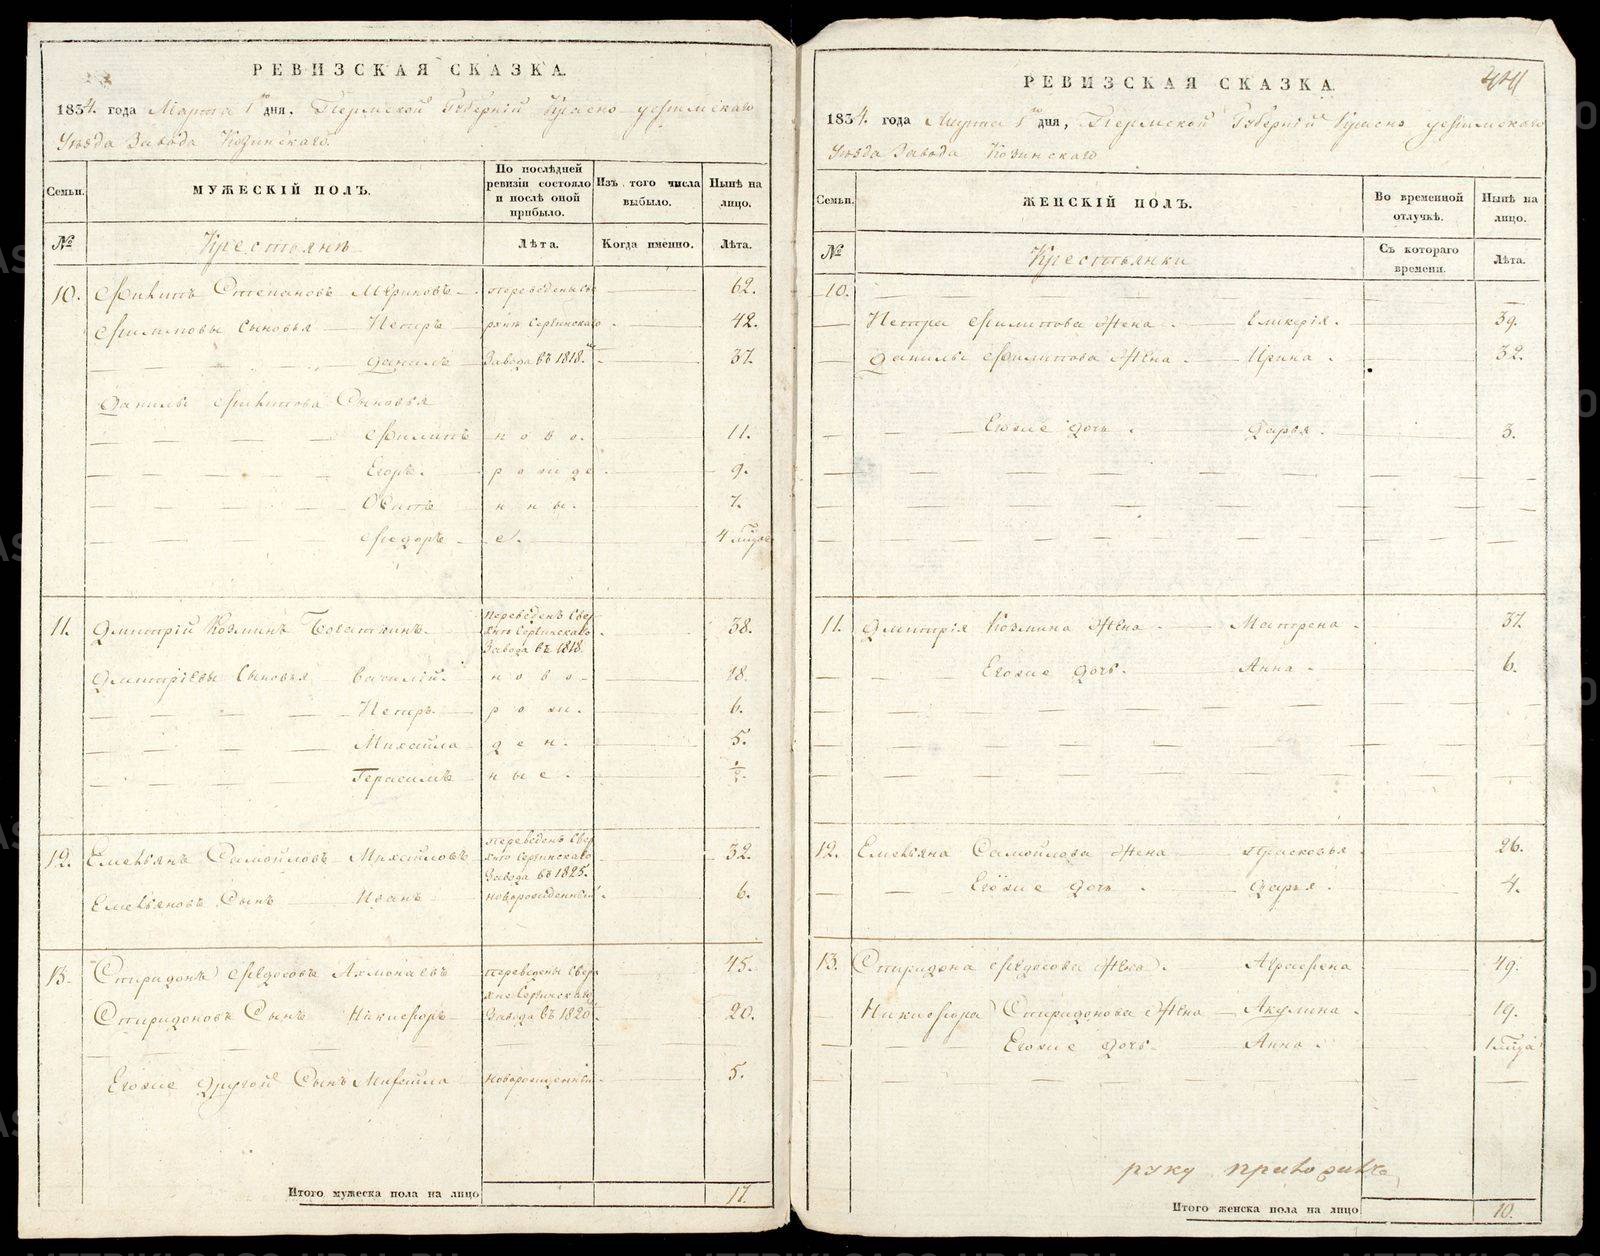 РЕВИЗСКАЯ СКАЗКА.
1834. года Марта 1го дня, Пермской Губернiи Красно уфимскаго
Уѣзда Завода Козинскаго.
Семьи.
МУЖЕСКIЙ ПОЛЪ.
По послѣдней ревизiи состояло и послѣ оной прибыло.
Изъ того числа выбыло.
Нынѣ на лицо.
№
Крестьянѣ
Лѣта.
Когда именно.
Лѣта.
10. Филипъ Степановъ переведены Све 62.
Филиповы Сыновья Петръ рхнѣ Сергинскаго 42.
Данилъ Завода въ 1818. 37.
Данилы Филипова Сыновья
Филипъ ново. 11.
Егоръ. рожде 9.
Осипъ нны. 7.
Федоръ е. 4
11. Дмитрiй Козминъ Переведенъ Свер 38.
хнѣ Сергинскаго
Завода въ 1818.
Дмитрiевы Сыновья Василiй. ново- 18.
Петръ. рож. 6.
Михайла ден. 5.
Герасимъ ные. ½.
12. Емельянъ Самойловъ Михайловъ переведенъ Свер 32.
хнѣ Сергинскаго
Завода въ 1825.
Емельяновъ Сынъ Иванъ новорожденный 6.
13. Спиридонъ Федосовъ Ахмонаевъ переведены Свер 45.
хнѣ Сергинскаго
Спиридоновъ Сынъ Никифоръ Завода въ 1820. 20.
Егоже другой Сынъ Михайла Новорожденный 5.
Итого мужеска пола на лицо 17.
РЕВИЗСКАЯ СКАЗКА.
1834. года Марта 1го дня, Пермской Губернiи Красно уфимскаго
Уѣзда Завода Козинскаго
Семьи.
ЖЕНСКIЙ ПОЛЪ.
Во временной отлучкѣ.
Нынѣ на лицо.
№
Крестьянки
Съ котораго времени.
Лѣта.
10.
Петра Филипова Жена Гликерiя. 39.
Данилы Филипова Жена Ирина. 32.
Егоже дочь Дарья. 3.
11. Дмитрiя Козмина Жена Матрена 37.
Егоже дочь. Анна 6.
12. Емельяна Самойлова Жена Прасковья 26.
Егоже дочь Дарья. 4.
13. Спиридона Федосова Жена. Аграфена 49.
Никифора Спиридонова Жена Акулина. 19.
Егоже дочь Анна. 1
руку приложилъ
Итого женска пола на лицо 10.